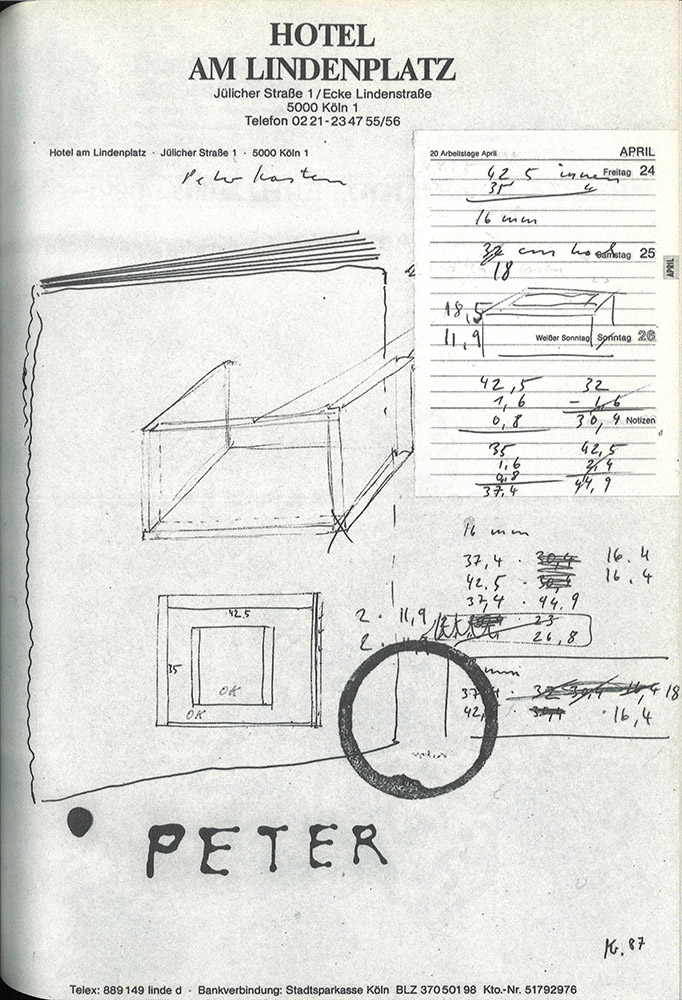 HOTEL
AM LINDENPLATZ
Jülicher Straße 1/Ecke Lindenstraße
5000 Köln 1
Telefon 02 21 - 23 47 55/56
Hotel am Lindenplatz · Jülicher Straße 1 · 5000 Köln 1
Peter Kasten
20 Arbeitstage April APRIL
Freitag 24
42 5 innen
35 "
16 mm
Samstag 25
32 cm hoch
18
APRIL
18,5
11,9
Weißer Sonntag Sonntag 26
42,5 32
1,6 - 1,6
0,8 30,4 Notizen
35 42,5
1,6 2,4
0,8 44,9
37,4
16 mm
37,4 · 30,4 16.4
42,5 · 30,4 16.4
37,4 · 44,9
2 · 11,9 23
2 · 26,8
mm
42,5
35
OK
OK
37,4 · 32 30,4 16,4 18
42, · 16,4
PETER
K. 87
Telex: 889 149 linde d · Bankverbindung: Stadtsparkasse Köln BLZ 370 501 98 Kto.-Nr. 51792976